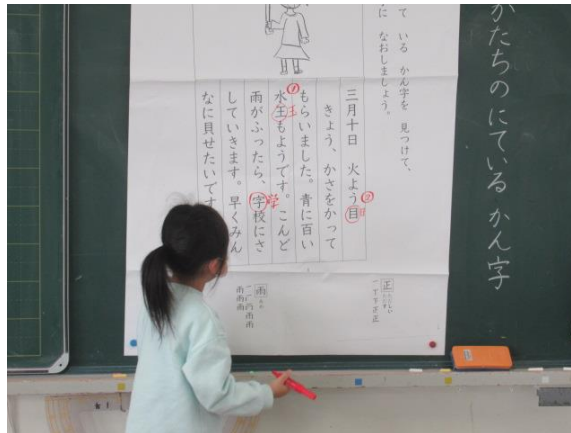 かたちのにている かん字
て いる かん字を 見つけて、
に なおしましょう。
三月十日 火よう目
②
日
きょう、かさをかって
もらいました。青に百い
水王もようです。こんど
玉
雨がふったら、字校にさ
学
していきます。早くみん
なに貝せたいです
正
雨